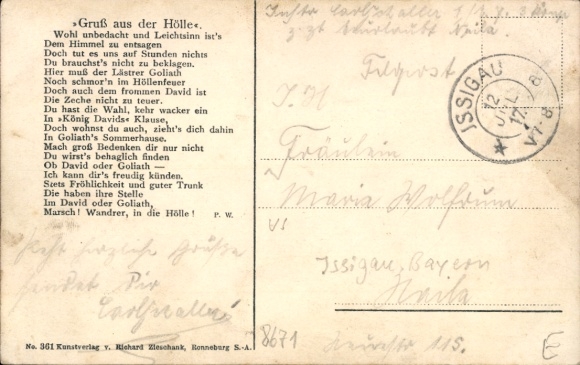 »Gruß aus der Hölle«.
Wohl unbedacht und Leichtsinn ist's
Dem Himmel zu entsagen
Doch tut es uns auf Stunden nichts
Du brauchst's nicht zu beklagen.
Hier muß der Lästrer Goliath
Noch schmor'n im Höllenfeuer
Doch auch dem frommen David ist
Die Zeche nicht zu teuer.
Du hast die Wahl, kehr wacker ein
In »König Davids« Klause,
Doch wohnst du auch, zieht's dich dahin
In Goliath's Sommerhause.
Mach groß Bedenken dir nur nicht
Du wirst's behaglich finden
Ob David oder Goliath —
Ich kann dir's freudig künden.
Stets Fröhlichkeit und guter Trunk
Die haben ihre Stelle
Im David oder Goliath,
Marsch! Wandrer, in die Hölle!
P. W.
herzliche Grüße
sendet Dir
No. 361 Kunstverlag v. Richard Zieschank, Ronneburg S.-A.
z. Zt. Naila.
Feldpost
ISSIGAU
12
JUL
17.
Fräulein
Maria Wolfrum
Issigau, Bayern
Naila
115.
8671
E